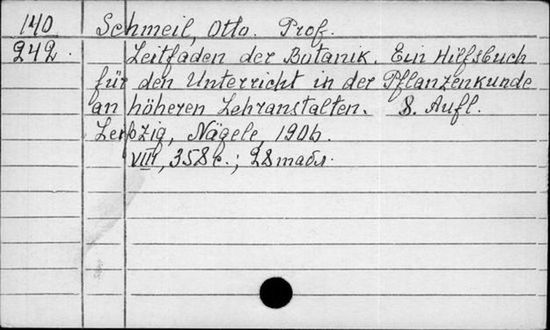 140 Schmeil, Otto. Prof.
242. Leitfaden der Botanik. Ein Hilfsbuch
für den Unterricht in der Pflanzenkunde
an höheren Lehranstalten. 8. Aufl.
Leipzig, Nägele, 1906.
VIII, 358 с.; 28 табл.